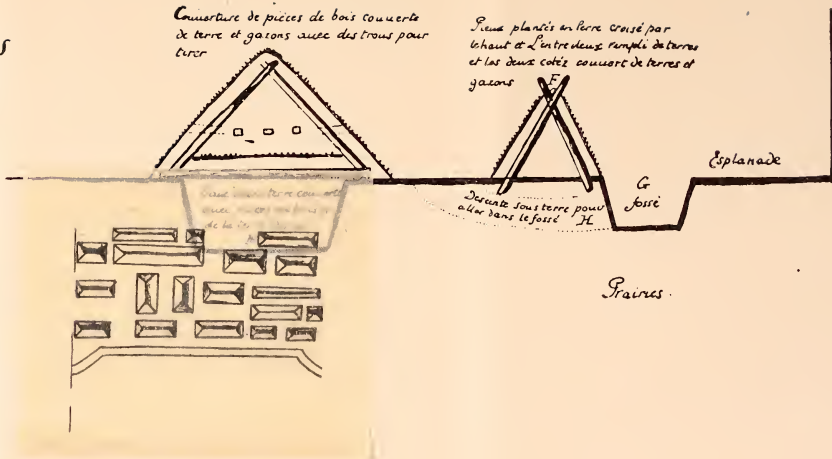 S
Couverture de pièces de bois couverte
de terre et gasons avec des trous pour
tirer
Pieux plantés en terre croisé par
le haut et L'entre deux rempli de terres
et les deux cotéz couvert de terres et
gasons
F
Esplanade
G
fossé
sous terre
Descente sous terre pour
aller dans le fossé H
Prairies.